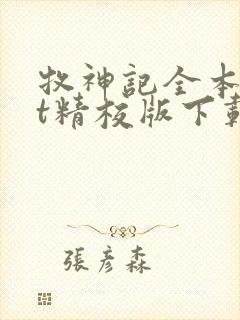 牧神記全本
t精校版下載
張彦森